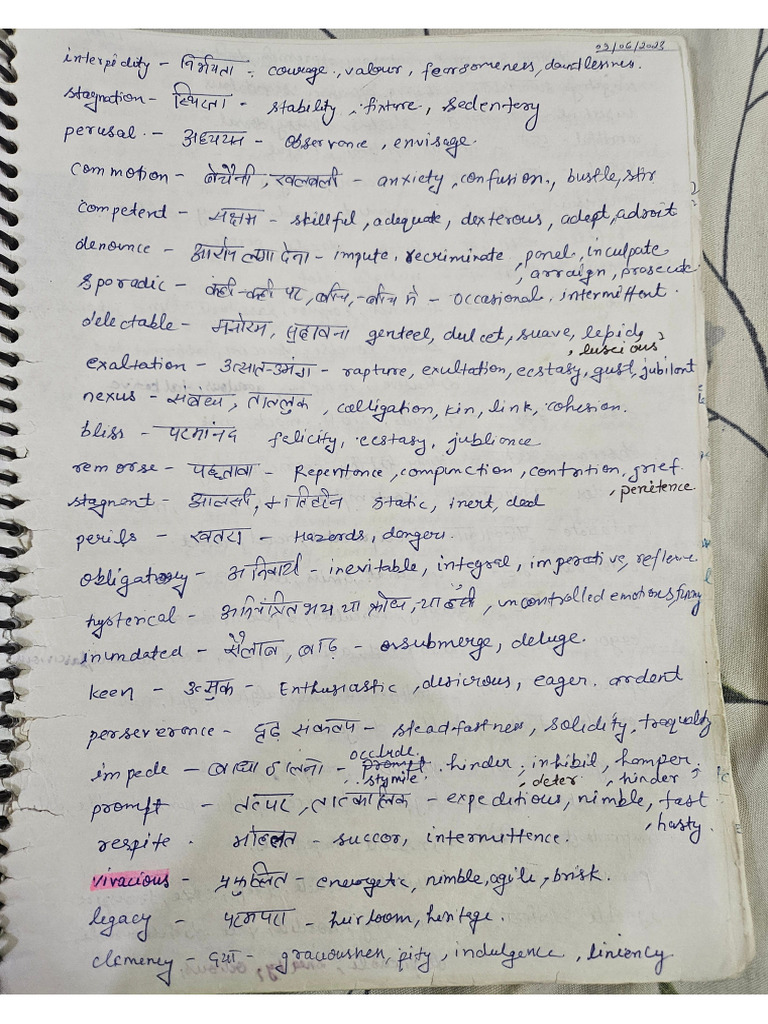 03/06/2023
interpidity - निर्भयता - courage, valour, fearsomeness, dauntlessness.
stagnation - स्थिरता - stability, fixture, sedentery
perusal - अध्ययन - observance, envisage.
commotion - बेचैनी, खलबली - anxiety, confusion, bustle, stir
competent - सक्षम - skillful, adequate, dexterous, adept, adroit
denounce - आरोप लगा देना - impute, recriminate, panel, inculpate
, arraign, prosecute
sporadic - कहीं-कहीं पर, बीच-बीच में - occasional, intermittent.
delectable - मनोरम, सुहावना genteel, dulcet, suave, lepid,
, luscious
exaltation - उत्साह-उमंग - rapture, exultation, ecstasy, gust, jubilant
nexus - सम्बन्ध, ताल्लुक, colligation, kin, link, cohesion.
bliss - परमानंद felicity, ecstasy, jublience
remorse - पछतावा - Repentance, compunction, contrition, grief.
, penitence
stagnent - आलसी, गतिहीन static, inert, dead
perils - खतरा - Hazards, dangers.
obligatory - अनिवार्य - inevitable, integral, imperative, reflexive
hysterical - अनियंत्रित भय या क्रोध, या हँसी, uncontrolled emotions, funny
inundated - सैलाब, बाढ़ - submerge, deluge.
keen - उत्सुक - Enthusiastic, desirous, eager. ardent
perseverence - दृढ़ संकल्प - steadfastness, solidity,
occlude.
impede - बाधा डालना - hinder, inhibit, hamper,
stymie. , deter , hinder
prompt - तत्पर, तात्कालिक - expeditious, nimble, fast
, hasty.
respite - मोहलत - succor, intermittence.
vivacious - प्रफुल्लित - energetic, nimble, agile, brisk.
legacy - परम्परा - heirloom, heritage.
clemency - दया - graciousness, pity, indulgence, liniency